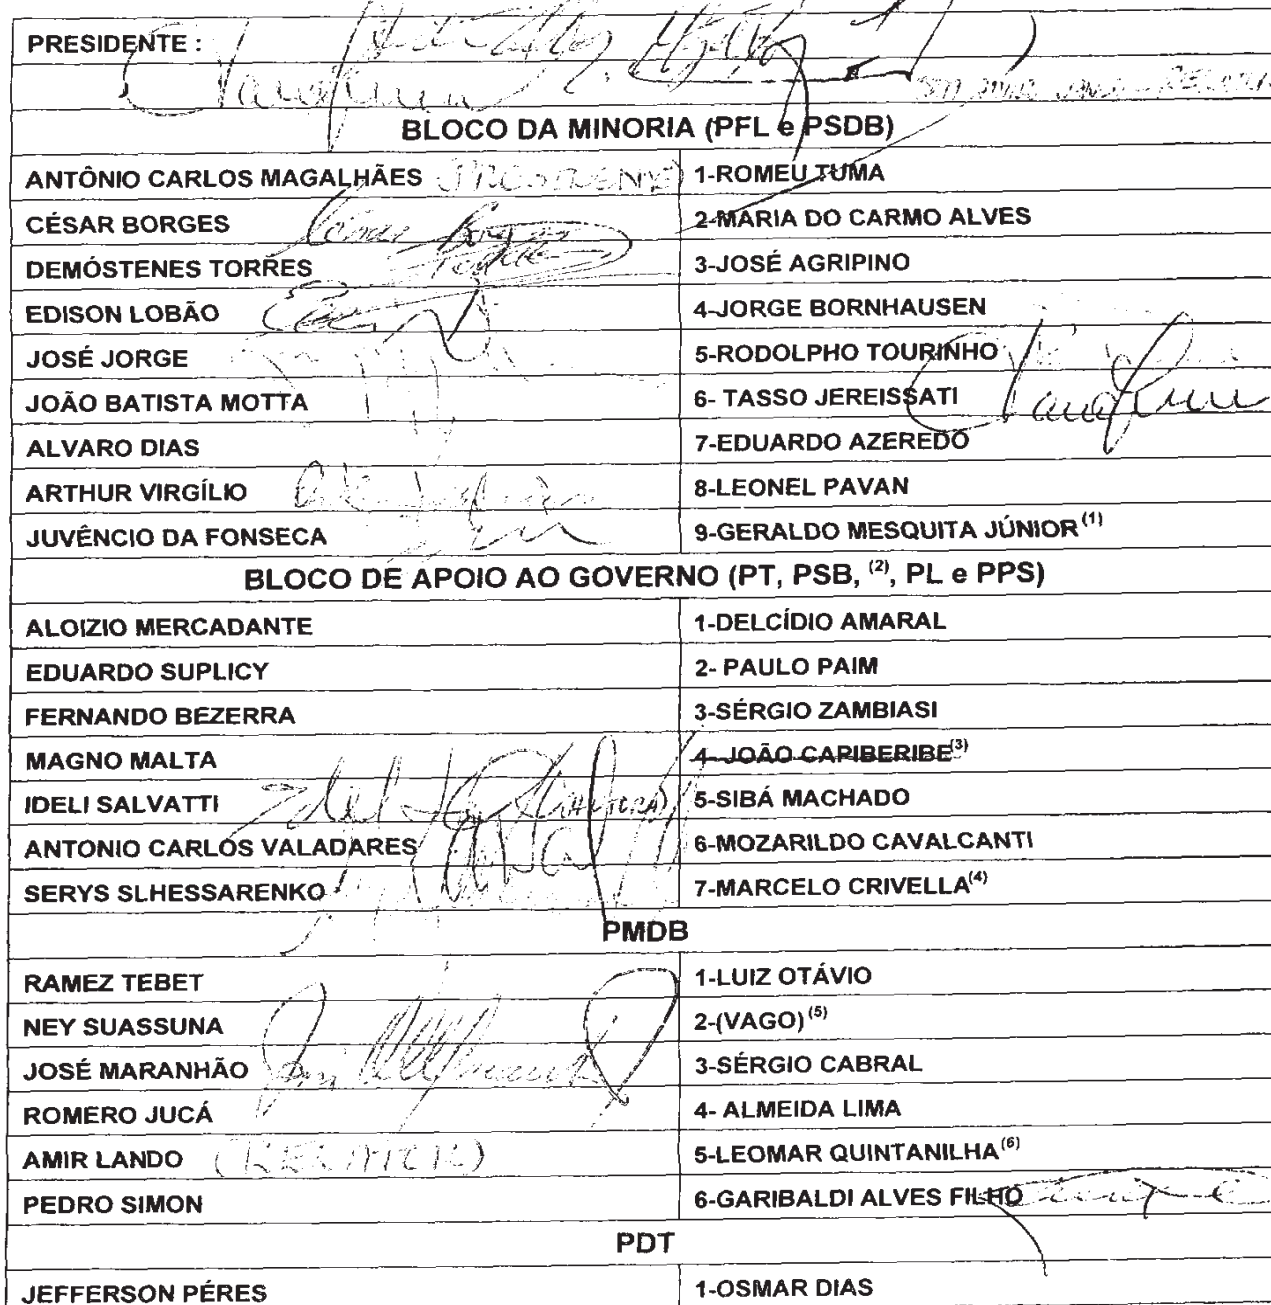 PRESIDENTE :
BLOCO DA MINORIA (PFL e PSDB)
ANTÔNIO CARLOS MAGALHÃES (PRESIDENTE) 1-ROMEU TUMA
CÉSAR BORGES César Borges 2-MARIA DO CARMO ALVES
DEMÓSTENES TORRES 3-JOSÉ AGRIPINO
EDISON LOBÃO 4-JORGE BORNHAUSEN
JOSÉ JORGE 5-RODOLPHO TOURINHO
JOÃO BATISTA MOTTA 6- TASSO JEREISSATI
ALVARO DIAS 7-EDUARDO AZEREDO
ARTHUR VIRGÍLIO 8-LEONEL PAVAN
JUVÊNCIO DA FONSECA 9-GERALDO MESQUITA JÚNIOR(1)
BLOCO DE APOIO AO GOVERNO (PT, PSB, (2), PL e PPS)
ALOIZIO MERCADANTE 1-DELCÍDIO AMARAL
EDUARDO SUPLICY 2- PAULO PAIM
FERNANDO BEZERRA 3-SÉRGIO ZAMBIASI
MAGNO MALTA 4- JOÃO CAPIBERIBE(3)
IDELI SALVATTI (AUTORA) 5-SIBÁ MACHADO
ANTONIO CARLOS VALADARES 6-MOZARILDO CAVALCANTI
SERYS SLHESSARENKO 7-MARCELO CRIVELLA(4)
PMDB
RAMEZ TEBET 1-LUIZ OTÁVIO
NEY SUASSUNA 2-(VAGO)(5)
JOSÉ MARANHÃO 3-SÉRGIO CABRAL
ROMERO JUCÁ 4- ALMEIDA LIMA
AMIR LANDO (RELATOR) 5-LEOMAR QUINTANILHA(6)
PEDRO SIMON 6-GARIBALDI ALVES FILHO
PDT
JEFFERSON PÉRES 1-OSMAR DIAS